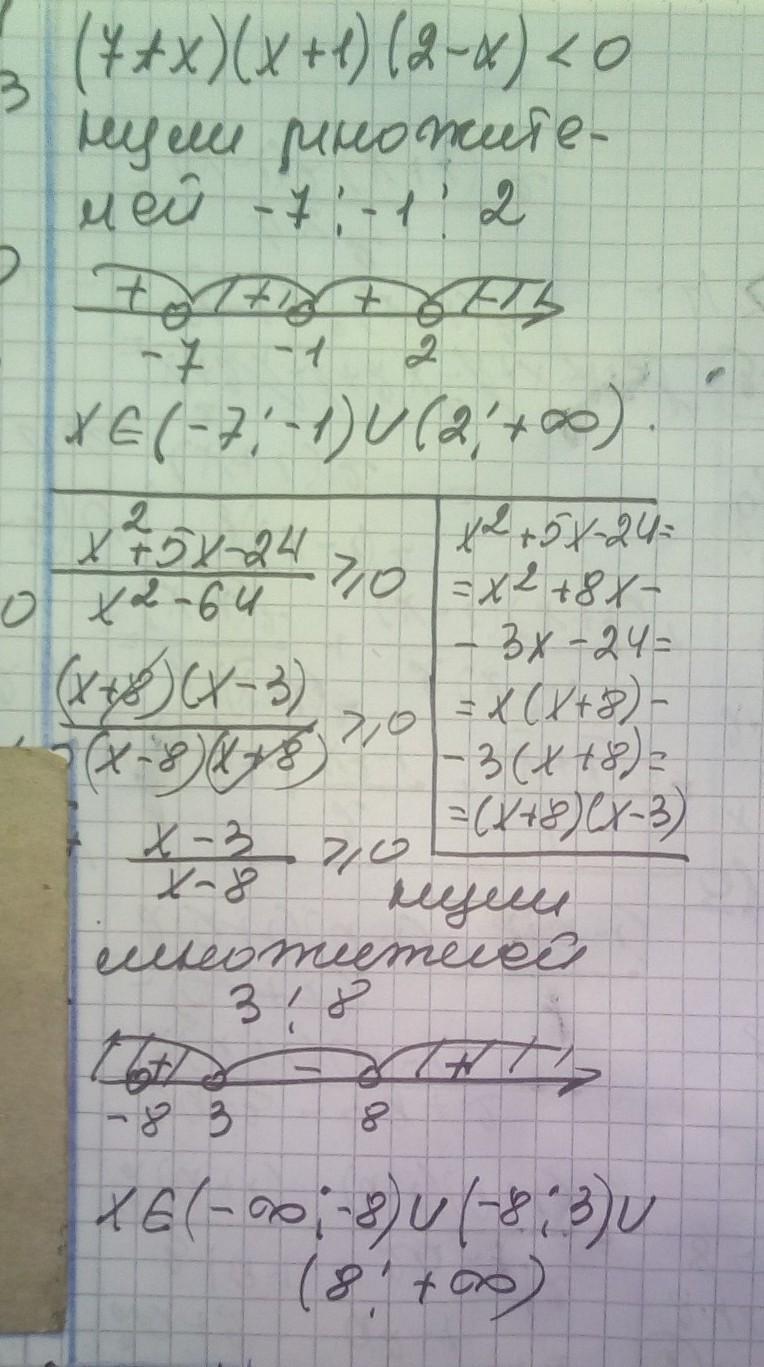 (7+x)(x+1)(2-x) < 0
нули множите-
лей -7; -1; 2
+ + + -
-7 -1 2
x∈(-7;-1)∪(2;+∞).
x²+5x-24
x²-64
≥0
(x+8)(x-3)
(x-8)(x+8)
≥0
x-3
x-8
≥0
x²+5x-24=
=x²+8x-
-3x-24=
=x(x+8)-
-3(x+8)=
=(x+8)(x-3)
нули
множителей
3; 8
+ - +
-8 3 8
x∈(-∞;-8)∪(-8;3)∪
(8;+∞)